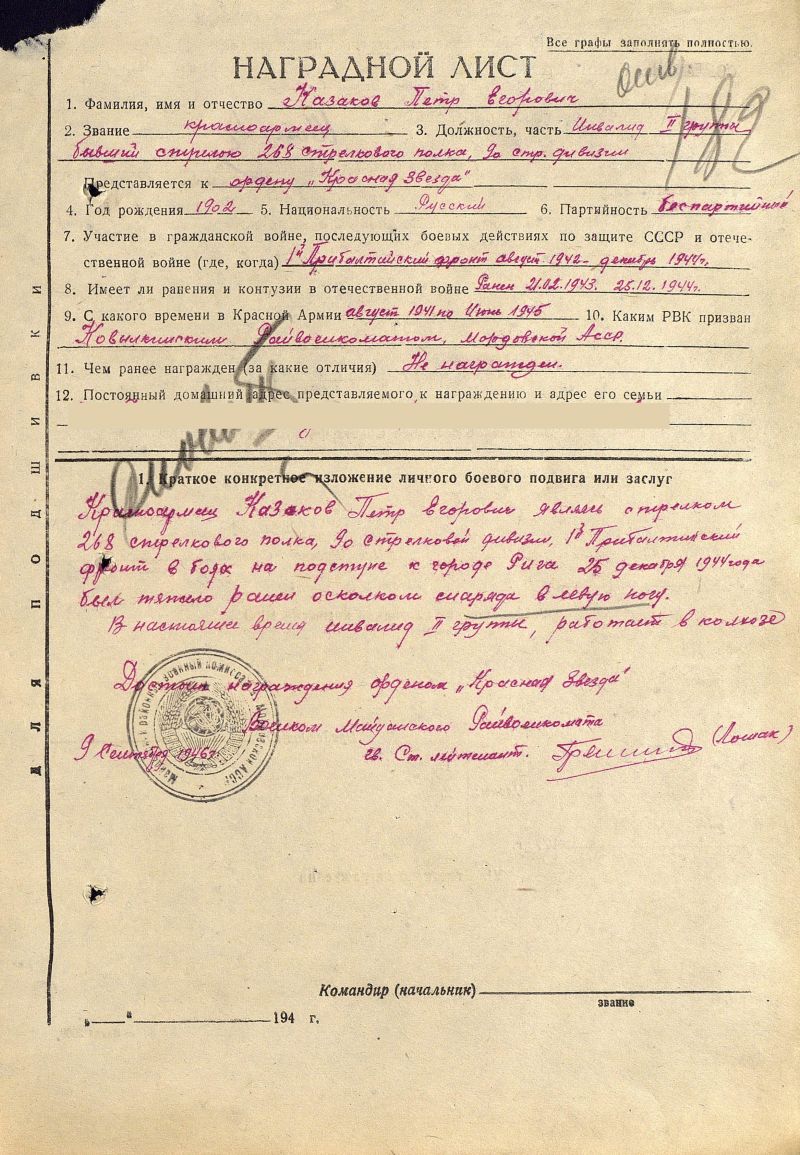 Все графы заполнять полностью.
НАГРАДНОЙ ЛИСТ
182
1. Фамилия, имя и отчество Казаков Петр Егорович
2. Звание красноармеец 3. Должность, часть Инвалид II группы
бывший стрелок 268 стрелкового полка, 90 стр. дивизии
Представляется к ордену „Красная Звезда"
4. Год рождения 1902 5. Национальность Русский 6. Партийность беспартийный
7. Участие в гражданской войне, последующих боевых действиях по защите СССР и отече-
ственной войне (где, когда) 1й Прибалтийский фронт август 1942- декабрь 1944г.
8. Имеет ли ранения и контузии в отечественной войне Ранен 21.02.1943. 25.12.1944г.
9. С какого времени в Красной Армии август 1941 по Июнь 1945 10. Каким РВК призван
Ковылкинским Райвоенкоматом, Мордовской Асср.
11. Чем ранее награжден (за какие отличия) Не награжден.
12. Постоянный домашний адрес представляемого к награждению и адрес его семьи
1. Краткое конкретное изложение личного боевого подвига или заслуг
Красноармеец Казаков Петр Егорович являясь стрелком
268 стрелкового полка, 90 стрелковой дивизии, 1й Прибалтийский
фронт в боях на подступе к городе Рига 25 декабря 1944 года
был тяжело ранен осколком снаряда в левую ногу.
В настоящее время инвалид II группы, работает в колхозе
Достоин награждения орденом „Красная Звезда"
Военком Майданского Райвоенкомата
9 Сентября 1946г. гв. Ст. лейтенант. (Лошак)
ДЛЯ ПОДШИВКИ
Командир (начальник)
звание
„ " 194 г.